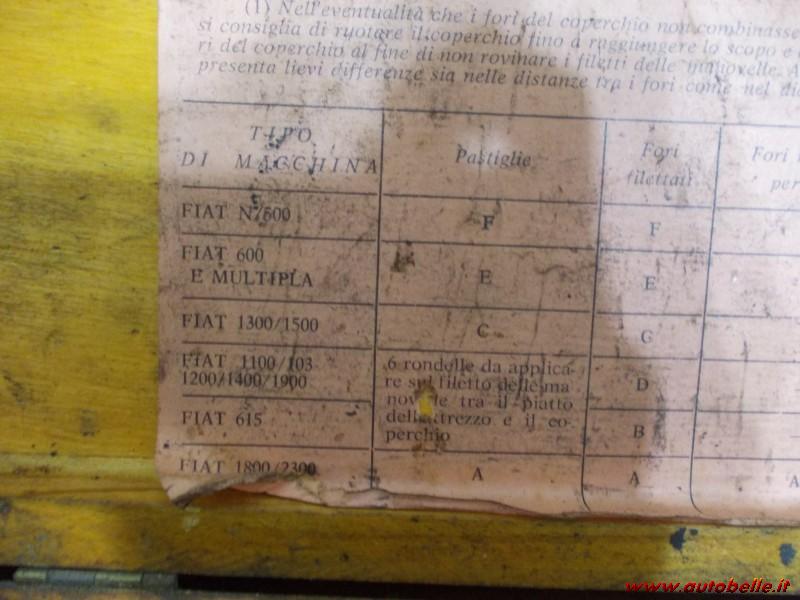 (1) Nell'eventualità che i fori del coperchio non combinasse
si consiglia di ruotare il coperchio fino a raggiungere lo scopo e
ri del coperchio al fine di non rovinare i filetti delle manovelle. A
presenta lievi differenze sia nelle distanze tra i fori come nel dia
TIPO
DI MACCHINA
Pastiglie
Fori
filettati
Fori
per
FIAT N/500
F
F
FIAT 600
E MULTIPLA
E
E
FIAT 1300/1500
C
C
FIAT 1100/103
1200/1400/1900
6 rondelle da applica-
re sul filetto delle ma
novelle tra il piatto
dell'attrezzo e il co-
perchio
D
FIAT 615
B
FIAT 1800/2300
A
A
A
www.autobelle.it